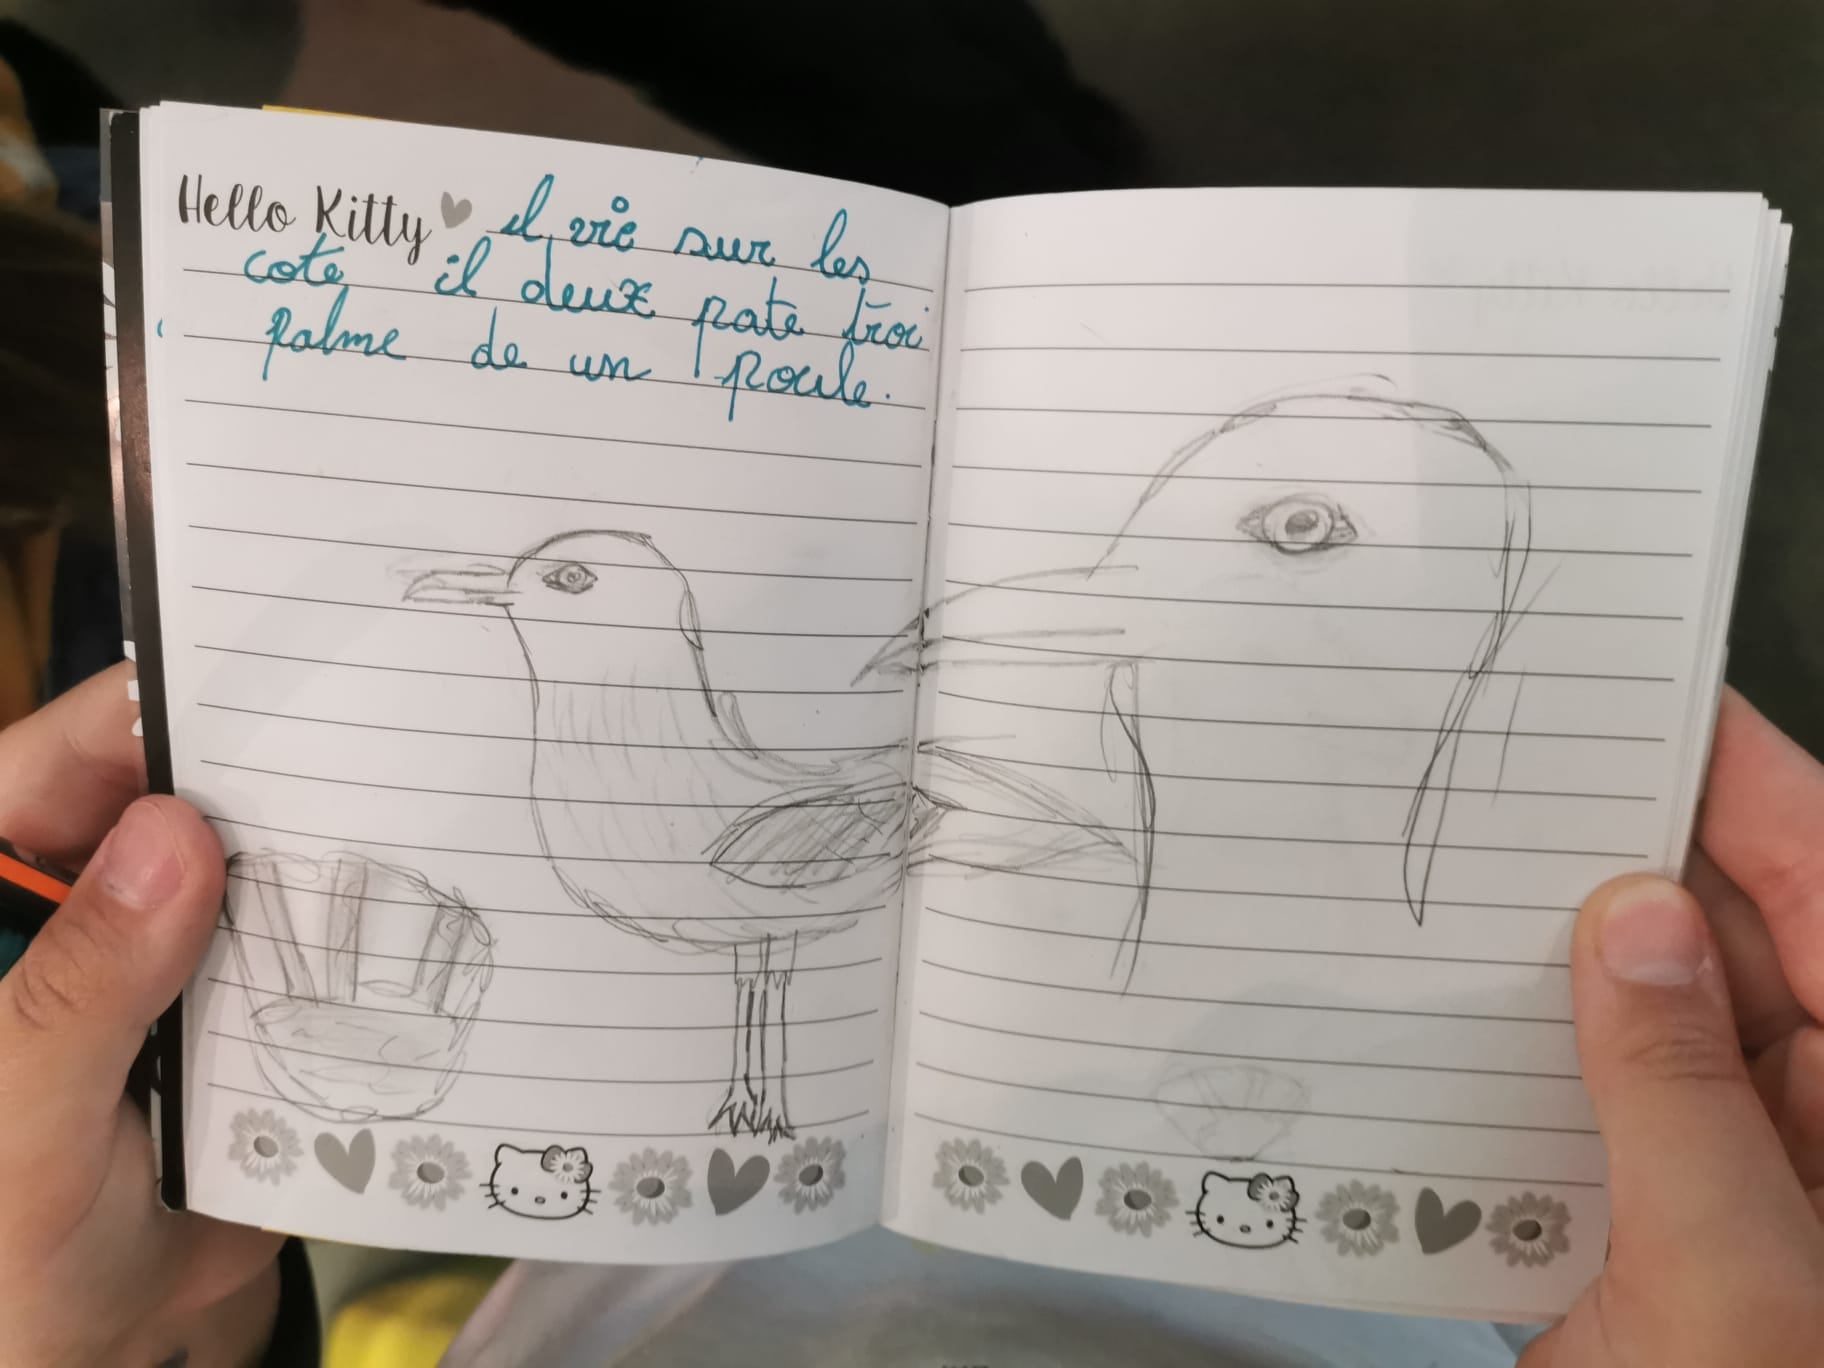 Hello Kitty il vie sur les
cote il deux pate troi
palme de un poule.